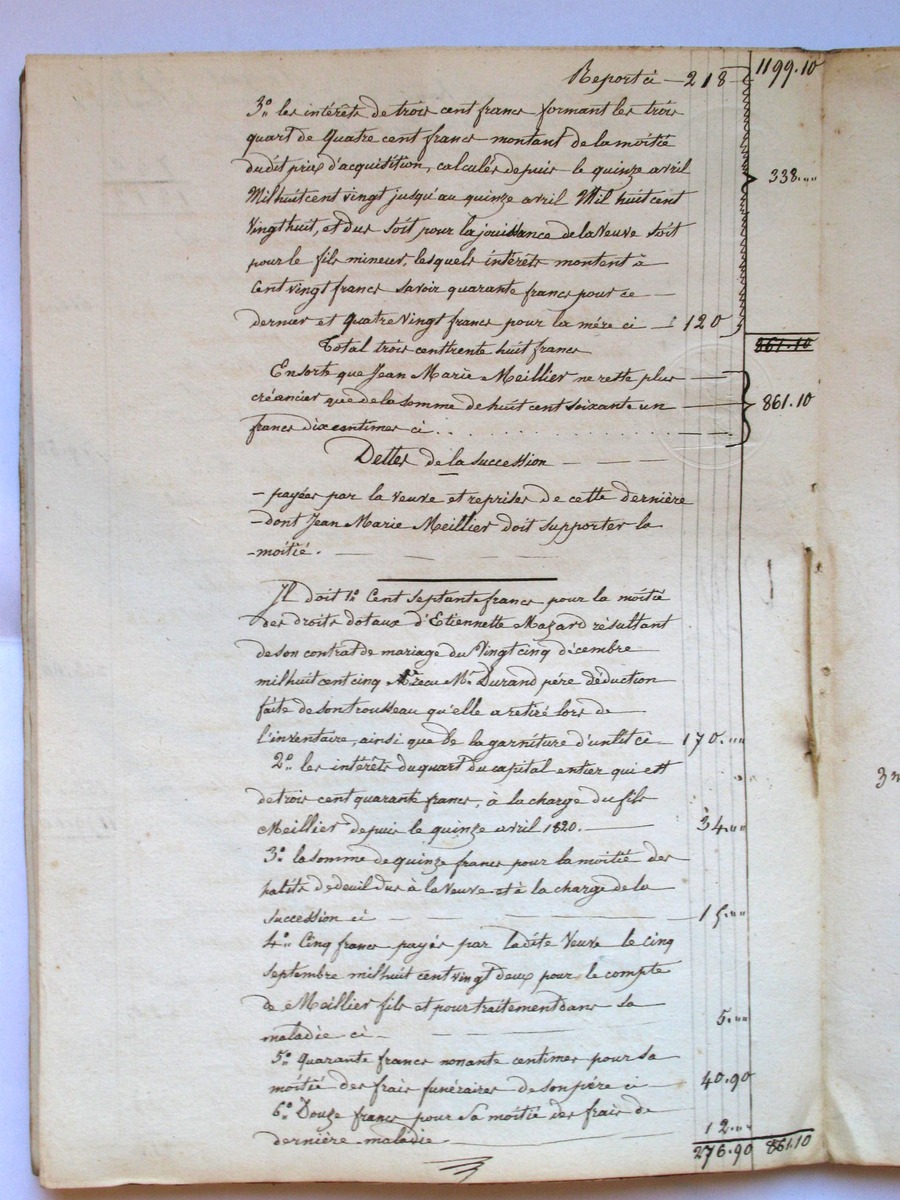 Report ci — 218 — 1199.10
3º. les intérêts de trois cent francs formant les trois
quart de Quatre cent francs montant de la moitié
dudit prix d'acquisition, calculés depuis le quinze avril
338.""
Mil huit cent vingt jusqu'au quinze avril Mil huit cent
Vingt huit, et dus soit pour la jouissance de la Veuve soit
pour le fils mineur, lesquels intérêts montent à
Cent vingt francs savoir quarante francs pour ce —
dernier et Quatre vingt francs pour la mère ci — 120
Total trois cent trente huit francs 861.10
Ensorte que Jean Marie Meillier ne reste plus —
créancier que de la somme de huit cent soixante un — 861.10
francs dix centimes ci . . . . . . . . . . . .
Dettes de la succession — — —
- payées par la veuve et reprises de cette dernière
- dont Jean Marie Meillier doit supporter la
- moitié. — — — —
Il doit 1º. Cent septante francs pour la moitié
des droits dotaux d'Etiennette Mazard résultant
de son contrat de mariage du Vingt cinq décembre
mil huit cent cinq reçu Mr. Durand père déduction
faite de son trousseau qu'elle a retiré lors de
l'inventaire, ainsi que de la garniture d'un lit ci — 170.""
2º. les intérêts du quart du capital entier qui est
de trois cent quarante francs, à la charge du fils
Meillier depuis le quinze avril 1820. — 34.""
3º. la somme de quinze francs pour la moitié des
habits de deuil dus à la Veuve et à la charge de la
succession ci — — — 15.""
4º. Cinq francs payés par ladite Veuve le cinq
septembre mil huit cent vingt deux pour le compte
de Meillier fils et pour traitement dans sa
maladie ci — — 5.""
5º. Quarante francs nonante centimes pour sa
moitié des frais funéraires de son père ci — 40.90
6º. Douze francs pour sa moitié des frais de
dernière maladie — 12.""
276.90 861.10